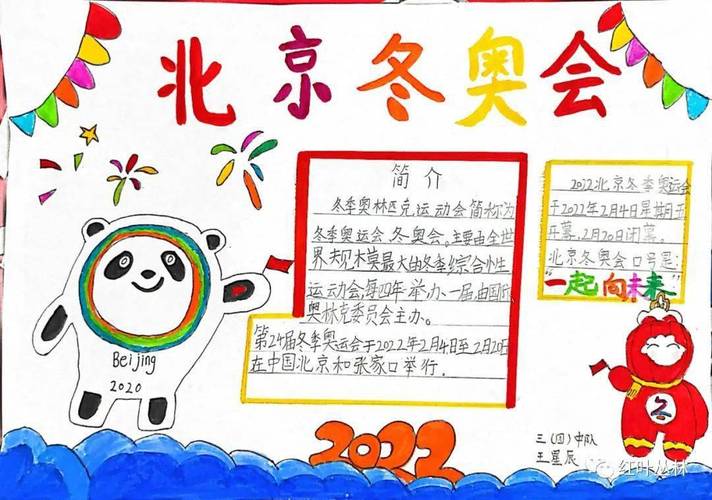 北京冬奥会
简介
冬季奥林匹克运动会简称为
冬季奥运会、冬奥会。主要由全世
界规模最大的冬季综合性
运动会,每四年举办一届由国际
奥林克委员会主办。
第24届冬季奥运会于2022年2月4日至2月20日
在中国北京和张家口举行.
2022北京冬季奥运会
于2022年2月4日星期五
开幕,2月20日闭幕。
北京冬奥会口号是:
“一起向未来”
Beijing
2020
2022
三(四)中队
王星辰
红叶丛林